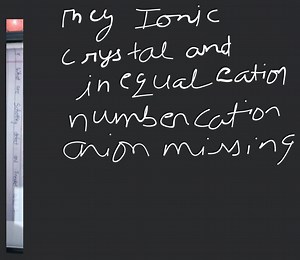 They Ionic
crystal and
in equal cation
number cation
anion missing